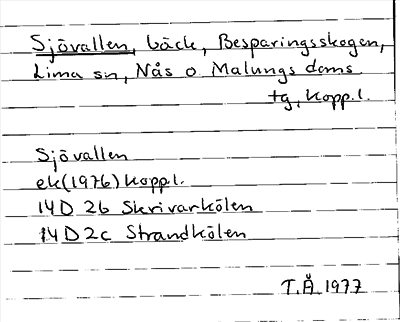 Sjövallen, bäck, Besparingsskogen,
Lima sn, Nås o Malungs doms
tg, Kopp.l.
Sjövallen
ek (1976) Koppl.
14D 2b Skrivarkölen
14D2c Strandkölen
T.Å 1977